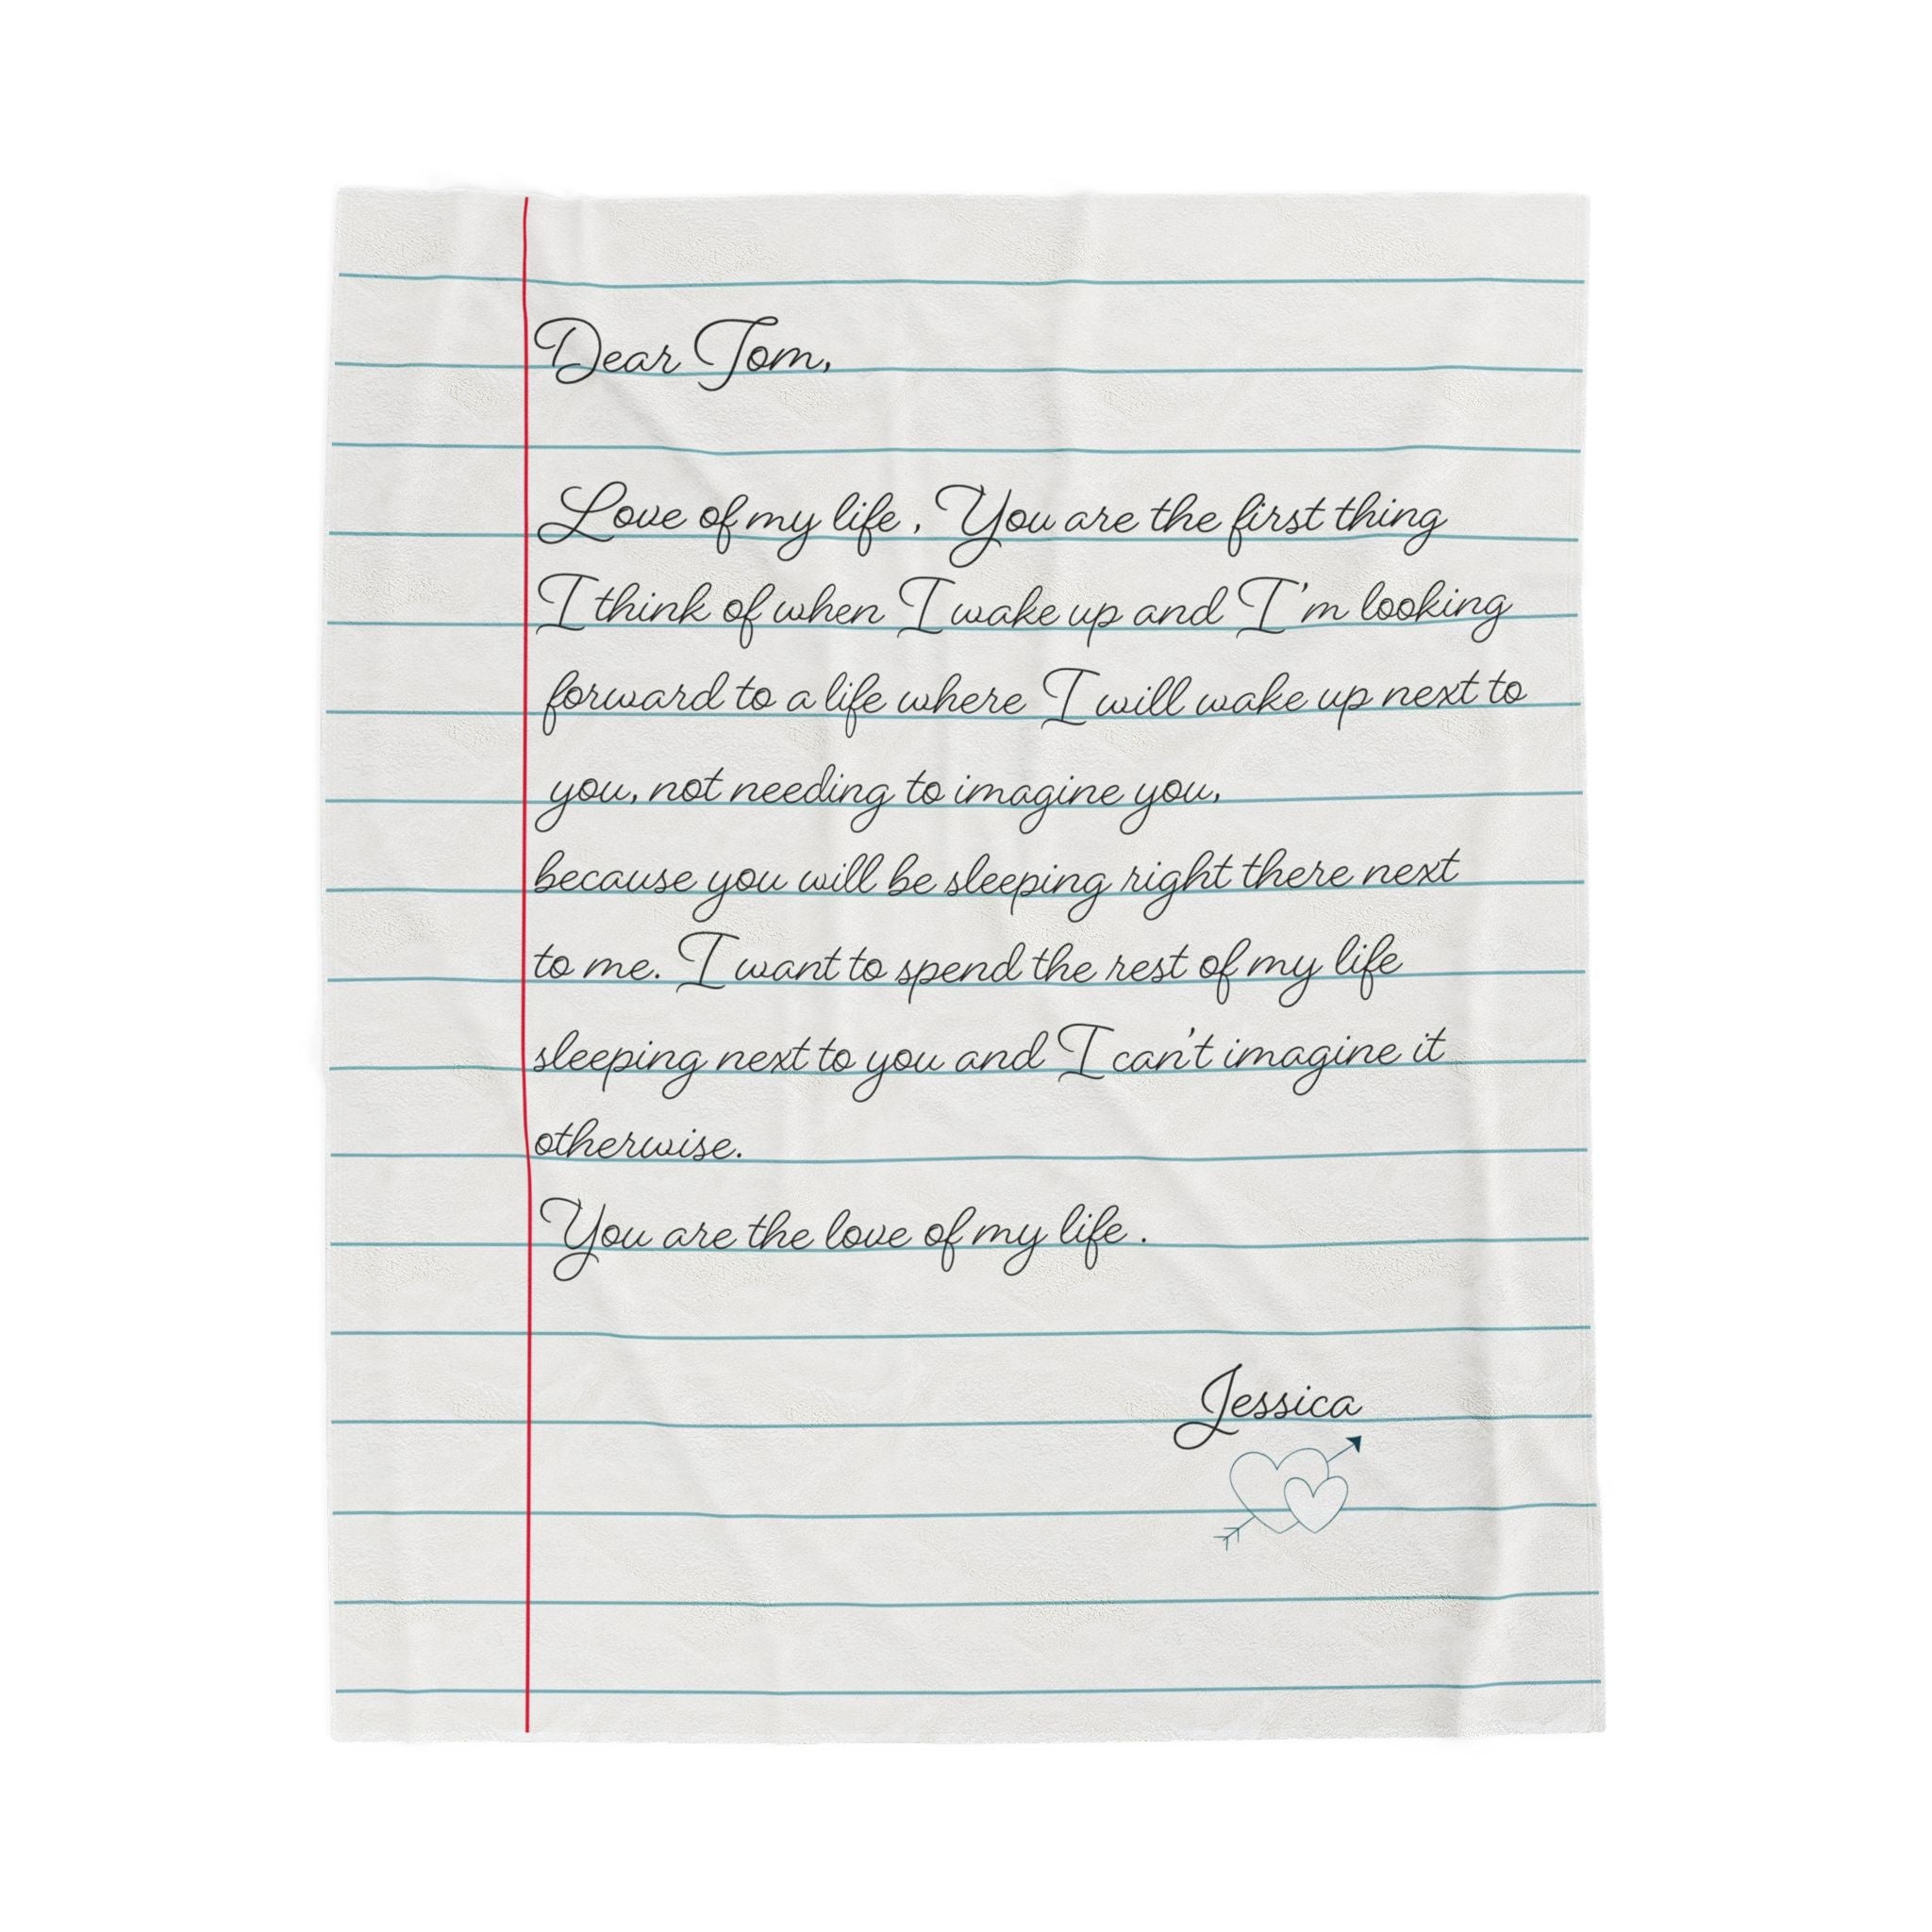 Dear Tom,
Love of my life , You are the first thing
I think of when I wake up and I'm looking
forward to a life where I will wake up next to
you, not needing to imagine you,
because you will be sleeping right there next
to me. I want to spend the rest of my life
sleeping next to you and I can't imagine it
otherwise.
You are the love of my life .
Jessica